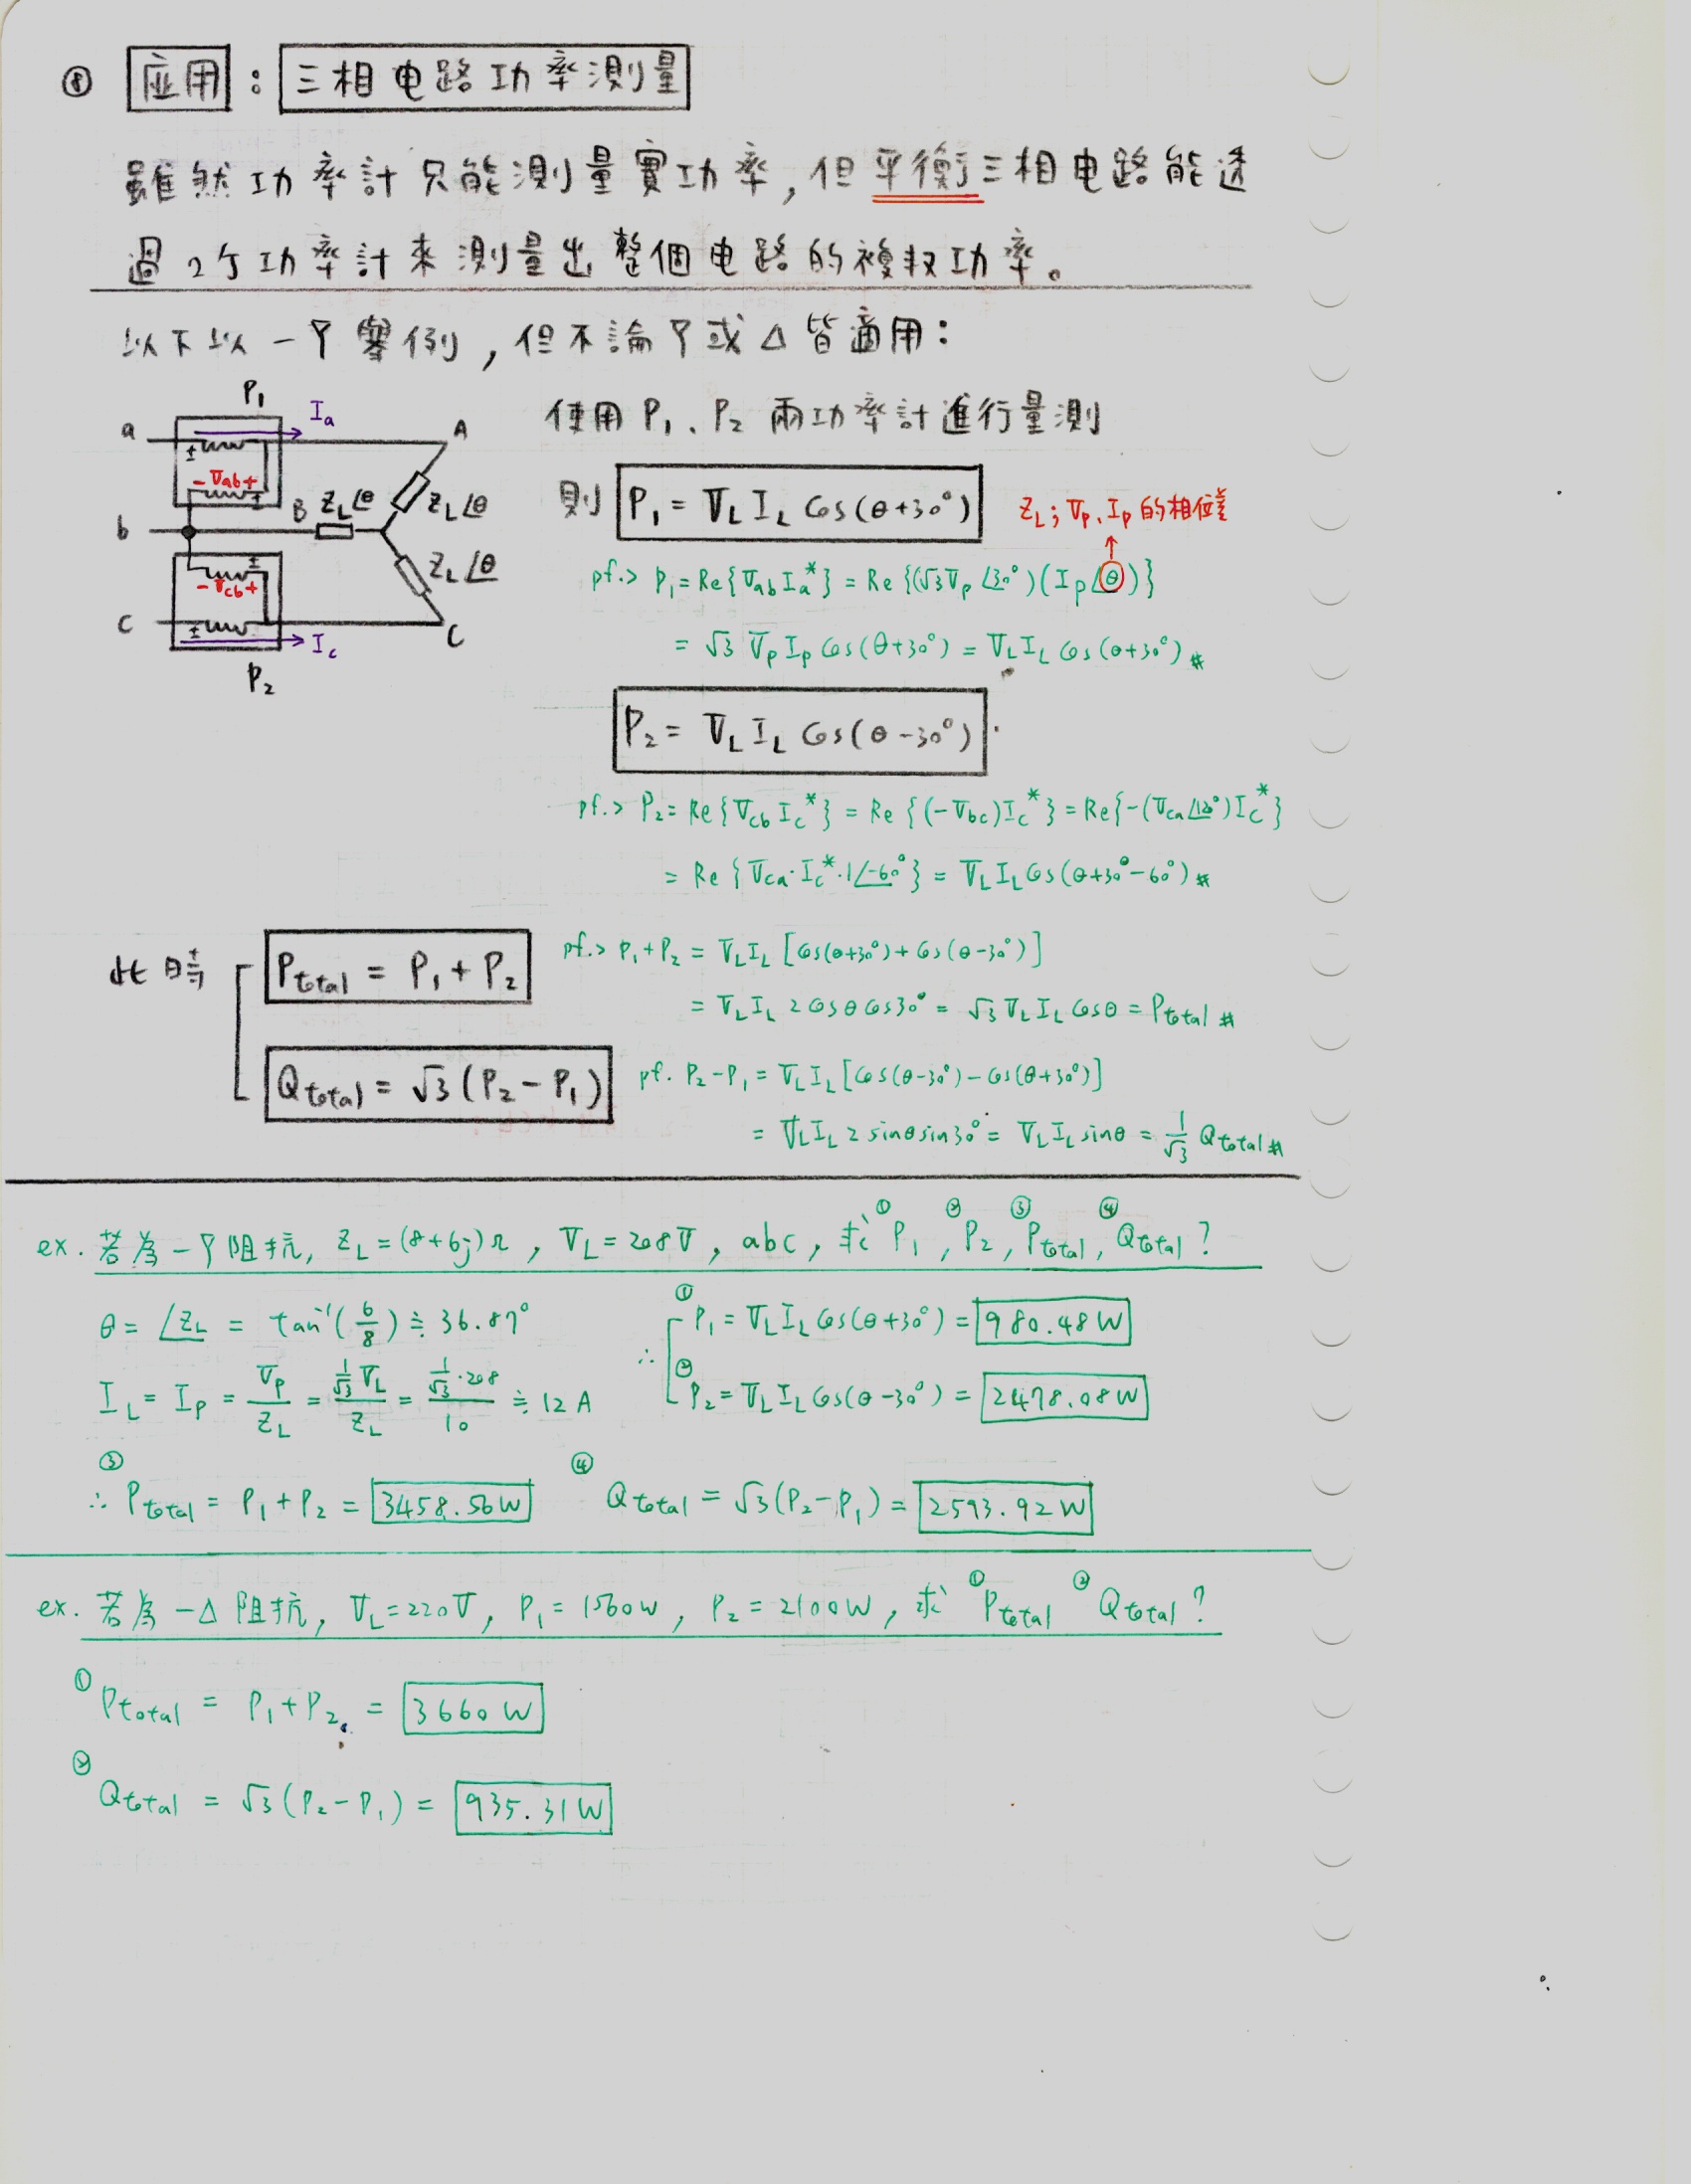 ⑧ 应用：三相电路功率測量
雖然功率計只能測量實功率，但平衡三相电路能透
過2个功率計來測量出整個电路的複数功率。
以下以一Y舉例，但不論Y或Δ皆適用：
P₁
Iₐ
a
±
A
-Vab+
±
Z_L∠θ
B Z_L∠θ
b
±
-Vcb+
Z_L∠θ
c
±
C
I_c
P₂
使用P₁、P₂兩功率計進行量測
則 P₁ = V_L I_L Cos(θ+30°)
Z_L；Vp、Ip的相位差
↑
pf.> P₁ = Re{Vab Ia*} = Re{(√3Vp∠30°)(Ip∠θ)}
= √3 Vp Ip Cos(θ+30°) = V_L I_L Cos(θ+30°) #
P₂ = V_L I_L Cos(θ-30°)
pf.> P₂ = Re{Vcb Ic*} = Re{(-Vbc)Ic*} = Re{-(Vca∠120°)Ic*}
= Re{Vca·Ic*·1∠-60°} = V_L I_L Cos(θ+30°-60°) #
此時
Ptotal = P₁ + P₂
pf.> P₁+P₂ = V_L I_L [Cos(θ+30°)+Cos(θ-30°)]
= V_L I_L 2CosθCos30° = √3 V_L I_L Cosθ = Ptotal #
Qtotal = √3(P₂-P₁)
pf. P₂-P₁ = V_L I_L [Cos(θ-30°)-Cos(θ+30°)]
= V_L I_L 2 sinθ sin30° = V_L I_L sinθ = 1/√3 Qtotal #
ex. 若為一Y阻抗, Z_L=(8+6j)Ω, V_L=208V, abc, 求 ①P₁, ②P₂, ③Ptotal, ④Qtotal?
θ = ∠Z_L = tan⁻¹(6/8) ≒ 36.87°
I_L = I_P = V_P/Z_L = (1/√3 V_L)/Z_L = (1/√3·208)/10 ≒ 12A
∴ ① P₁ = V_L I_L Cos(θ+30°) = 980.48W
② P₂ = V_L I_L Cos(θ-30°) = 2478.08W
③ ∴ Ptotal = P₁+P₂ = 3458.56W
④ Qtotal = √3(P₂-P₁) = 2593.92W
ex. 若為一Δ阻抗, V_L=220V, P₁=1560W, P₂=2100W, 求 ①Ptotal ②Qtotal?
① Ptotal = P₁+P₂ = 3660W
② Qtotal = √3(P₂-P₁) = 935.31W